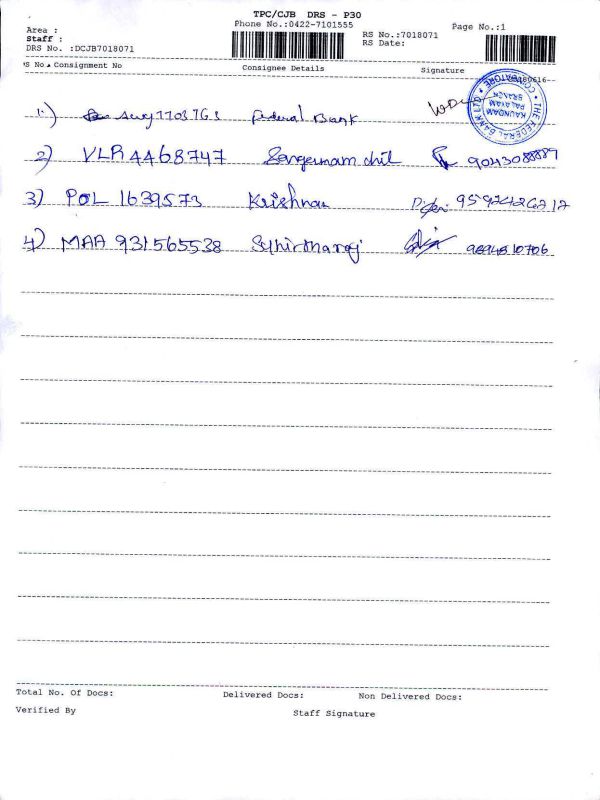 TPC/CJB DRS - P30
Area :
Phone No.:0422-7101555
Page No.:1
Staff :
RS No.:7018071
DRS No. :DCJB7018071
RS Date:
S No. Consignment No
Consignee Details
Signature
THE FEDERAL BANK LTD
COIMBATORE
KAUNDAM
PALAYAM
BRANCH
1) 77037763 Federal Bank
2) VLR 4468747 9043088889
3) POL 1639573 Krishnan
4) MAA 931565538 9894810706
Total No. Of Docs:
Delivered Docs:
Non Delivered Docs:
Verified By
Staff Signature